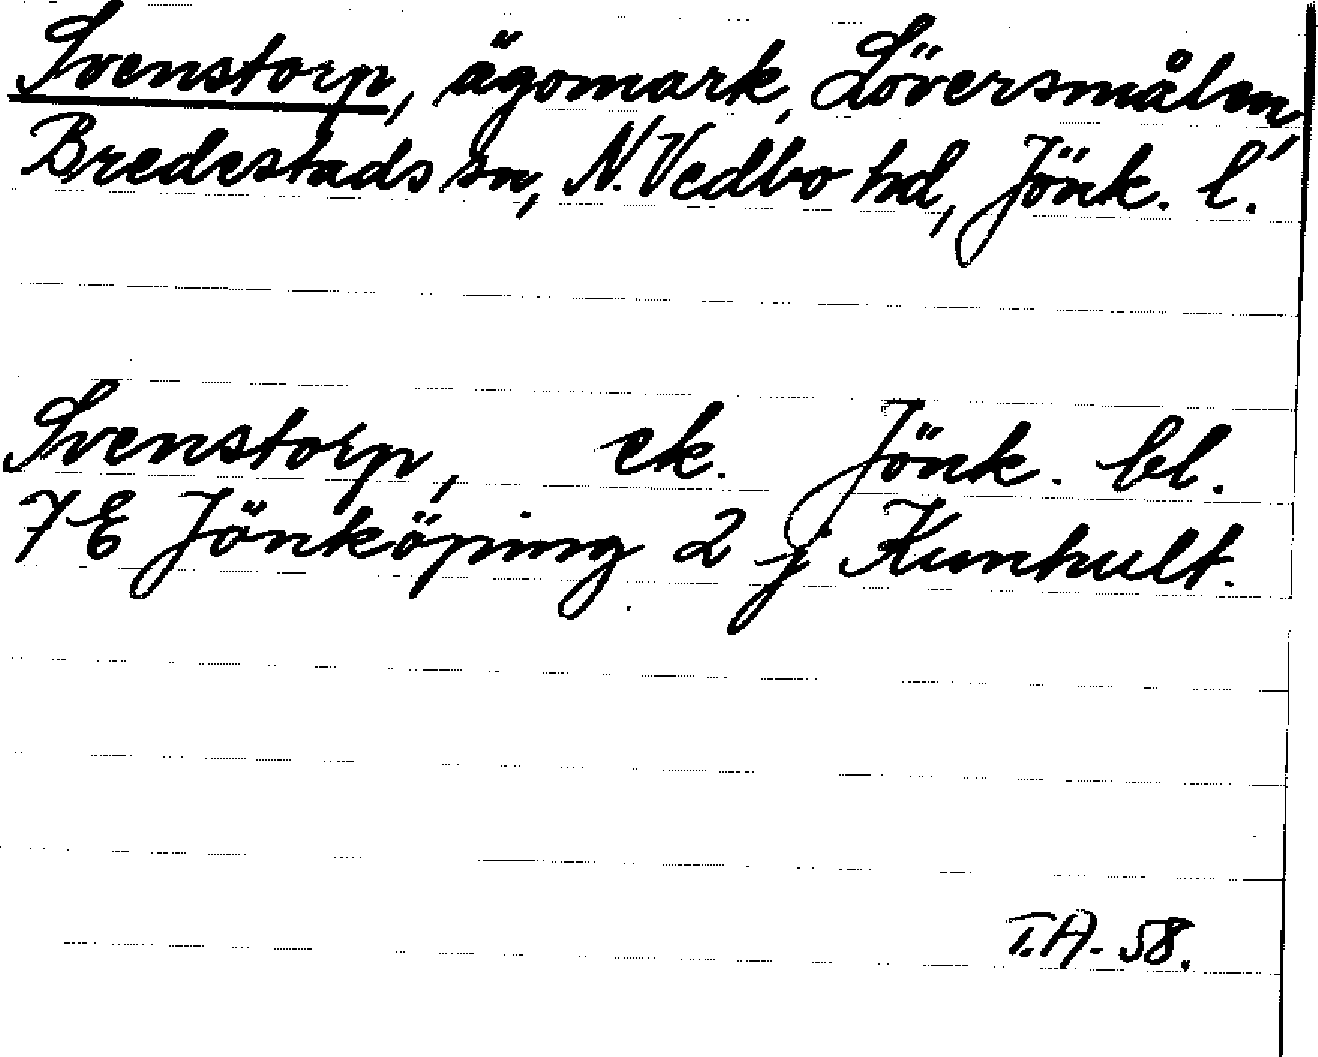 Svenstorp, ägomark, Löversmålen,
Bredestads sn, N. Vedbo hd, Jönk. l.
Svenstorp, ek. Jönk. bl.
7E Jönköping 2 j Kunhult.
T.A. 58.